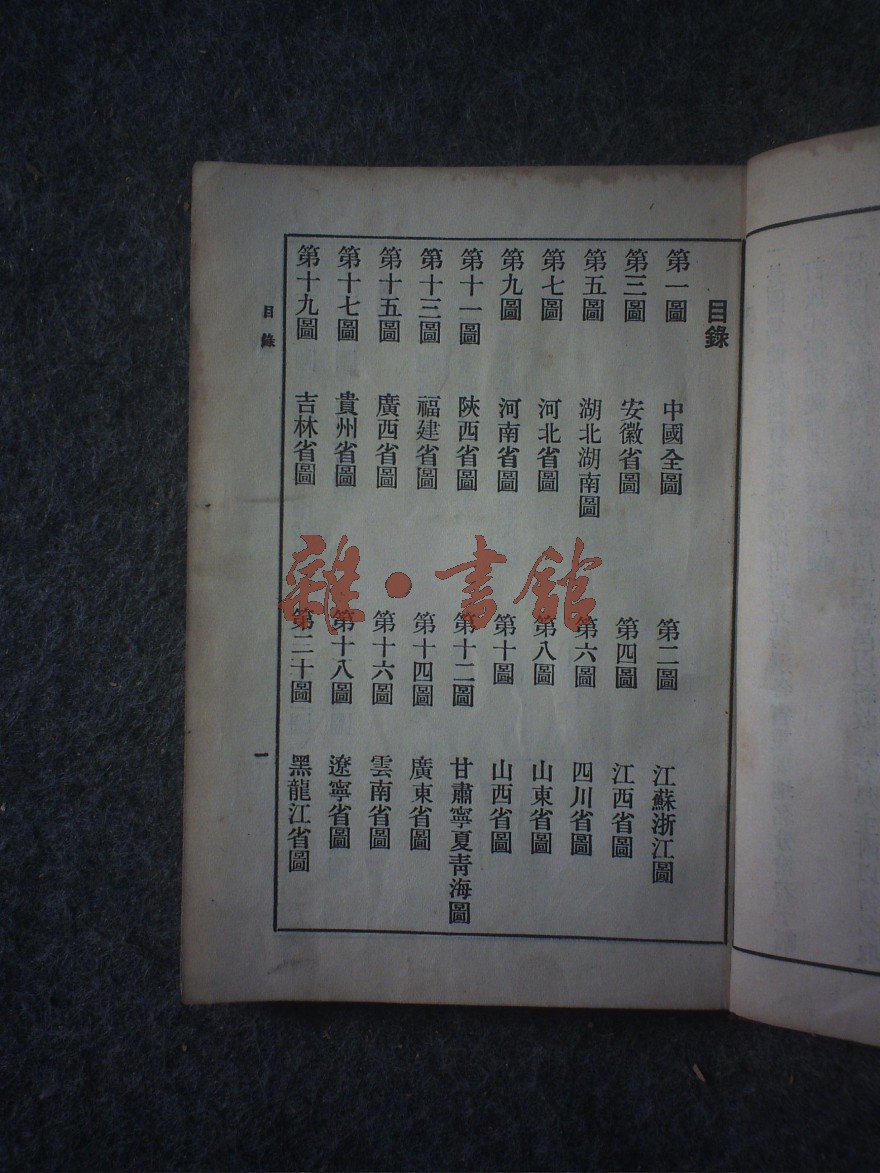 目錄
第一圖 中國全圖 第二圖 江蘇浙江圖
第三圖 安徽省圖 第四圖 江西省圖
第五圖 湖北湖南圖 第六圖 四川省圖
第七圖 河北省圖 第八圖 山東省圖
第九圖 河南省圖 第十圖 山西省圖
第十一圖 陝西省圖 第十二圖 甘肅寧夏青海圖
第十三圖 福建省圖 第十四圖 廣東省圖
第十五圖 廣西省圖 第十六圖 雲南省圖
第十七圖 貴州省圖 第十八圖 遼寧省圖
第十九圖 吉林省圖 第二十圖 黑龍江省圖
目錄 一
雜·書館